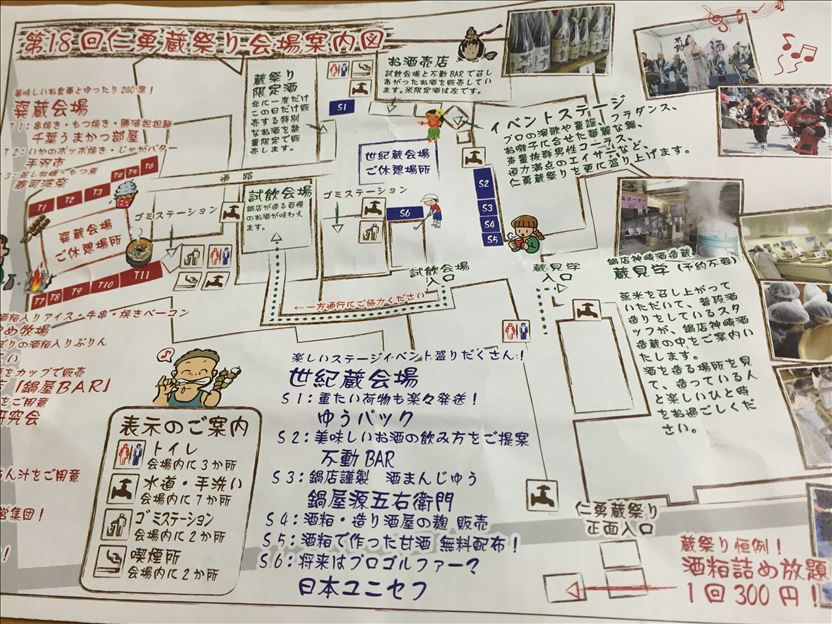 第18回仁勇蔵祭り会場案内図
美味しいお食事とゆったり200席！
菜蔵会場
T1：串焼き・もつ焼き・勝浦担担麺
千葉うまかつ部屋
T2：いかのポッポ焼き・じゃがバター
寿司波奈
蔵祭り
限定酒
年に一度だけ
この日だけ販
売する特別
なお酒を数
量限定で販
売します。
お酒売店
試飲会場と不動BARで召し
あがったお酒を販売してい
ます。※限定酒は左です。
イベントステージ
プロの演歌や童謡、フラダンス、
お囃子に合せた華麗な舞、
声量抜群男性コーラス、
迫力満点のエイサーなど、
仁勇蔵祭りを更に盛り上げます。
S1
世紀蔵会場
ご休憩場所
S2
S3
S4
S5
S6
通路
試飲会場
鍋店が造る自慢
のお酒が味わえ
ます。
ゴミステーション
ゴミステーション
T1
T2
T3
T4
T5
T6
菜蔵会場
ご休憩場所
T7
T8
T9
T10
T11
試飲会場
入口
←一方通行にご協力ください
蔵見学
入口
鍋店神崎酒造蔵
蔵見学（予約不要）
蒸米を召し上がって
いただいて、普段酒
造りをしているスタ
ッフが、鍋店神崎酒
造蔵の中をご案内い
たします。
酒を造る場所を見
て、造っている人
と楽しいひと時
をお過ごしくだ
さい。
酒粕入りアイス・牛串・焼きベーコン
め牧場
りの酒粕入りぷりん
をカップで販売
「鍋屋BAR」
をご用意
研究会
ん汁をご用意
営集団！
表示のご案内
トイレ
会場内に3か所
水道・手洗い
会場内に7か所
ゴミステーション
会場内に2か所
喫煙所
会場内に2か所
楽しいステージイベント盛りだくさん！
世紀蔵会場
S1：重たい荷物も楽々発送！
ゆうパック
S2：美味しいお酒の飲み方をご提案
不動BAR
S3：鍋店謹製 酒まんじゅう
鍋屋源五右衛門
S4：酒粕・造り酒屋の麹 販売
S5：酒粕で作った甘酒 無料配布！
S6：将来はプロゴルファー？
日本ユニセフ
仁勇蔵祭り
正面入口
蔵祭り恒例！
酒粕詰め放題
1回300円！